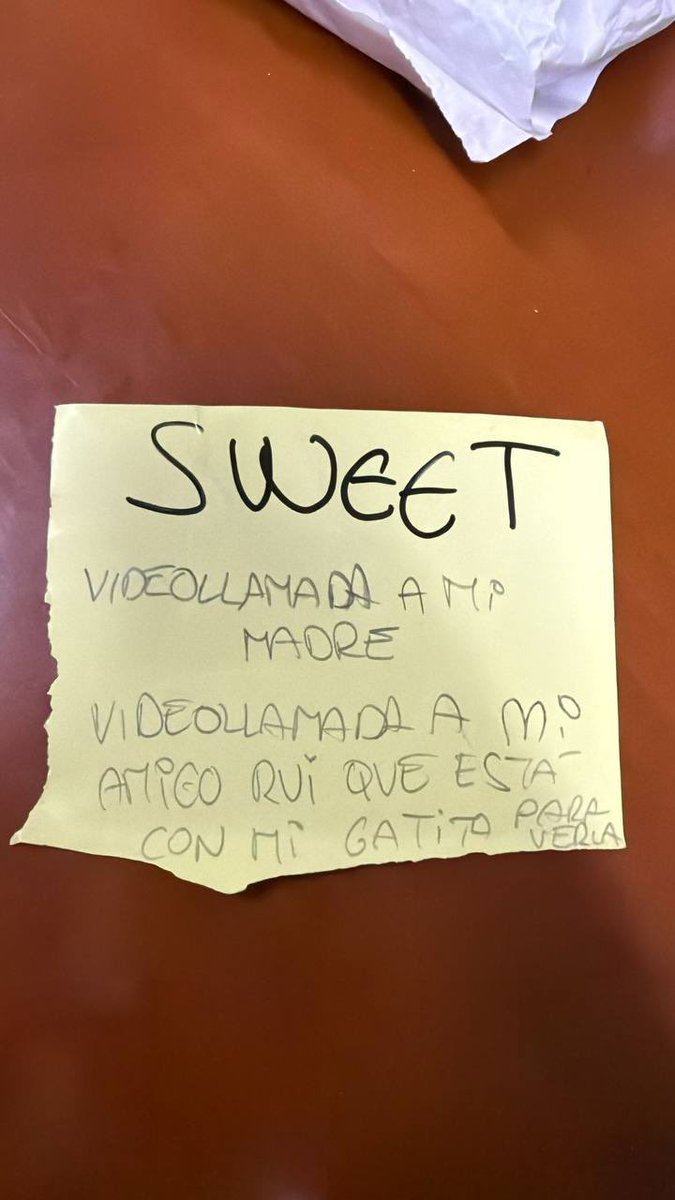 SWEET
VIDEOLLAMADA A Mi
MADRE
VIDEOLLAMADA A Mi
AMiGO RUi QUE ESTÁ
CON Mi GATiTO PARA
VERLA